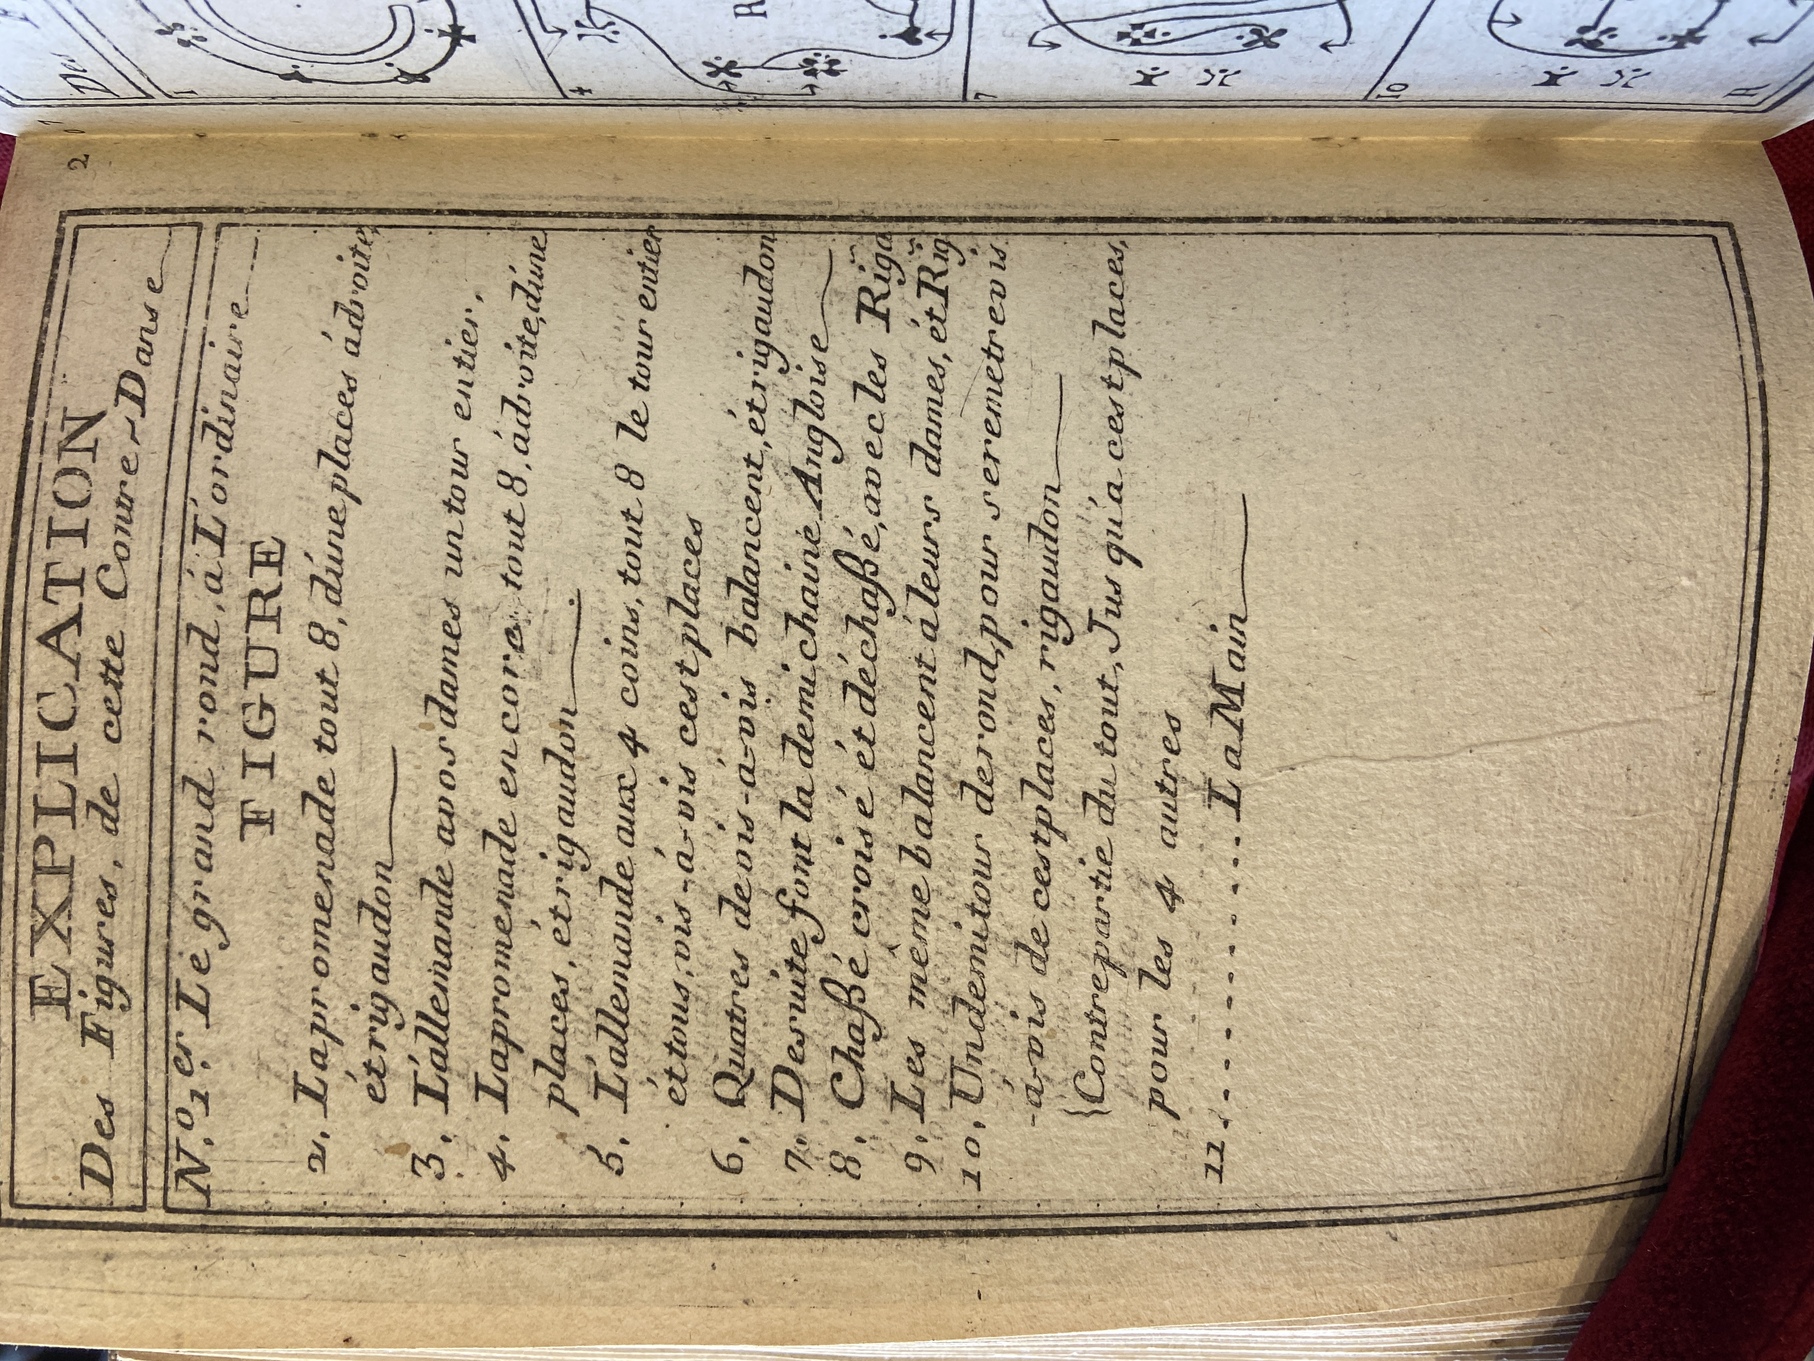 2
EXPLICATION
Des Figures, de cette Contre-Danse
N.º 1.er Le grand rond, á L'ordinaire
FIGURE
2. La promenade tout 8, dúne places ádroite,
ét rigaudon
3. L'allemande avos dames un tour entier,
4. La promenade encore tout 8, ádroite, dúne
places, ét rigaudon
5. L'allemande aux 4 coins, tout 8 le tour entier
ét tous, vis-á-vis cest places
6. Quatres de vis-á-vis balancent, ét rigaudon
7. De suite font la demi chaine Angloise
8. Chaßé croisé ét déchaßé, avec les Riga
9. Les même balancent á leurs dames, ét Rig
10. Un demi tour de rond, pour se remetre vis
-á-vis de cest places, rigaudon
{Contre partie du tout, Jus qu'a cest places,
pour les 4 autres
11. . . . . . . . . . . La Main
1
4
R
7
10
R